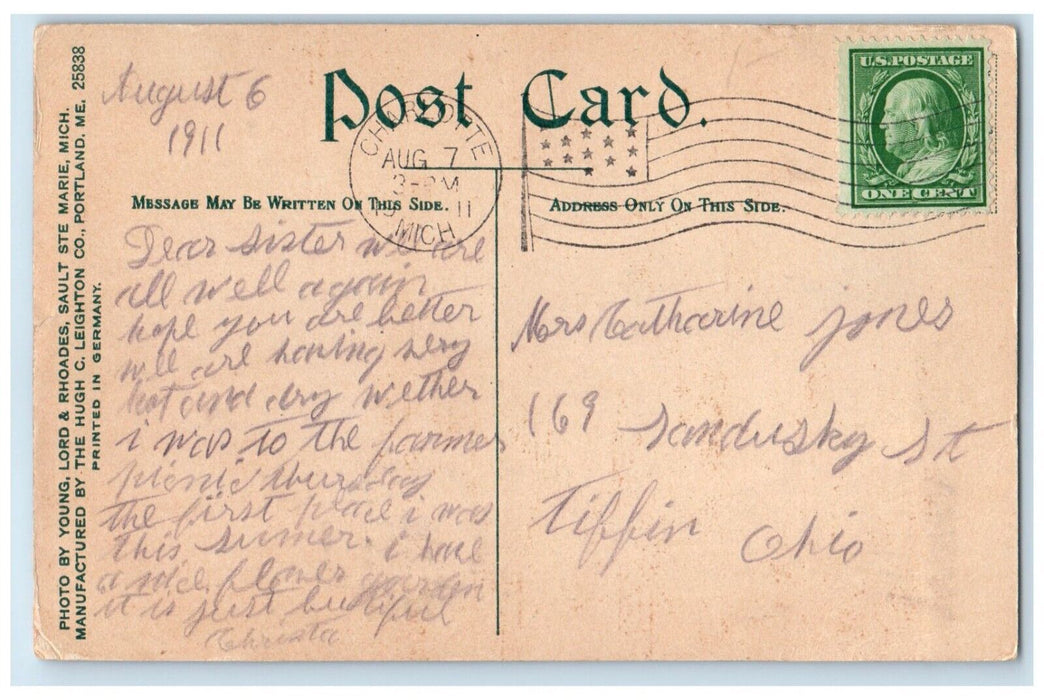 PHOTO BY YOUNG, LORD & RHOADES, SAULT STE MARIE, MICH.
MANUFACTURED BY THE HUGH C. LEIGHTON CO., PORTLAND, ME. 25838
PRINTED IN GERMANY.
August 6
1911
Post Card.
CHARLOTTE
AUG 7
3-PM
11
MICH
U.S. POSTAGE
ONE CENT
MESSAGE MAY BE WRITTEN ON THIS SIDE.
ADDRESS ONLY ON THIS SIDE.
Dear sister we are
all well again
hope you are better
we are having very
hot and dry wether
i was to the farmer
picnic thursday
the first place i was
this sumer. i have
a nice flower garden
it is just butiful
Christa
Mrs Catharine jones
169 Sandusky St
Tiffin Ohio